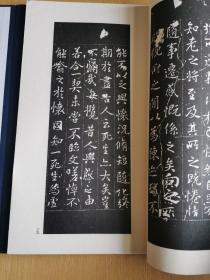 知老之將至及其所之既惓情
隨事遷感慨係之矣向之
俛仰之間以為陳迹猶不
能不以之興懷況脩短隨化終
期於盡古人云死生亦大矣豈
不痛哉每攬昔人興感之由
若合一契未嘗不臨文嗟悼不
能喻之於懷固知一死生為虛